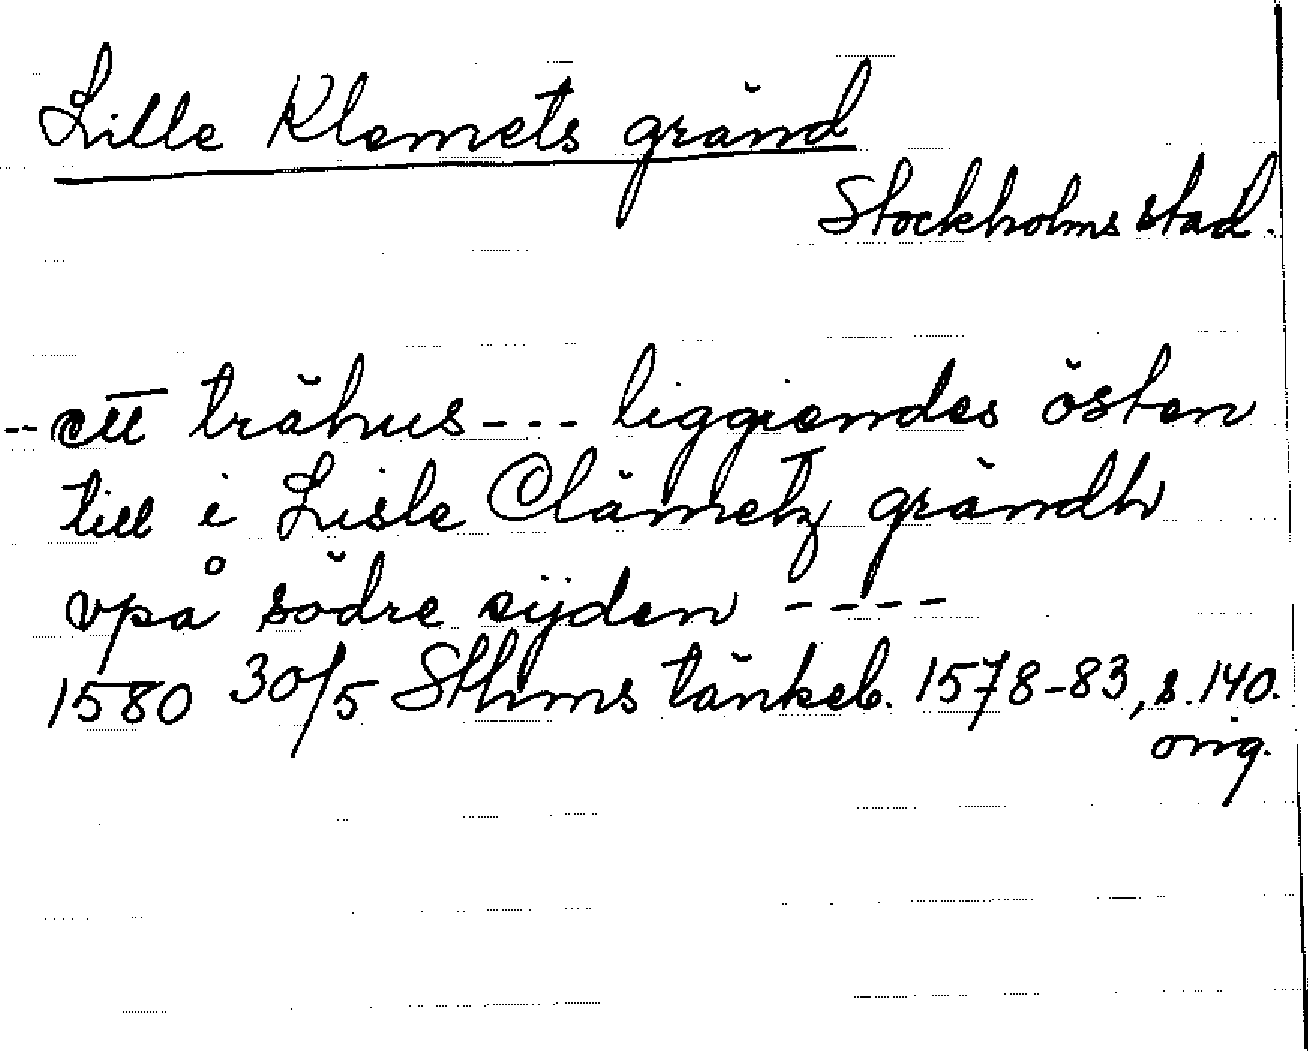 Lille Klemets gränd
Stockholms stad.
-- ett trähus --- liggiendes östen
till i Lisle Clämetz grändh
vpå södre sijden ----
1580 30/5 Sthms tänkeb. 1578-83, s. 140.
orig.